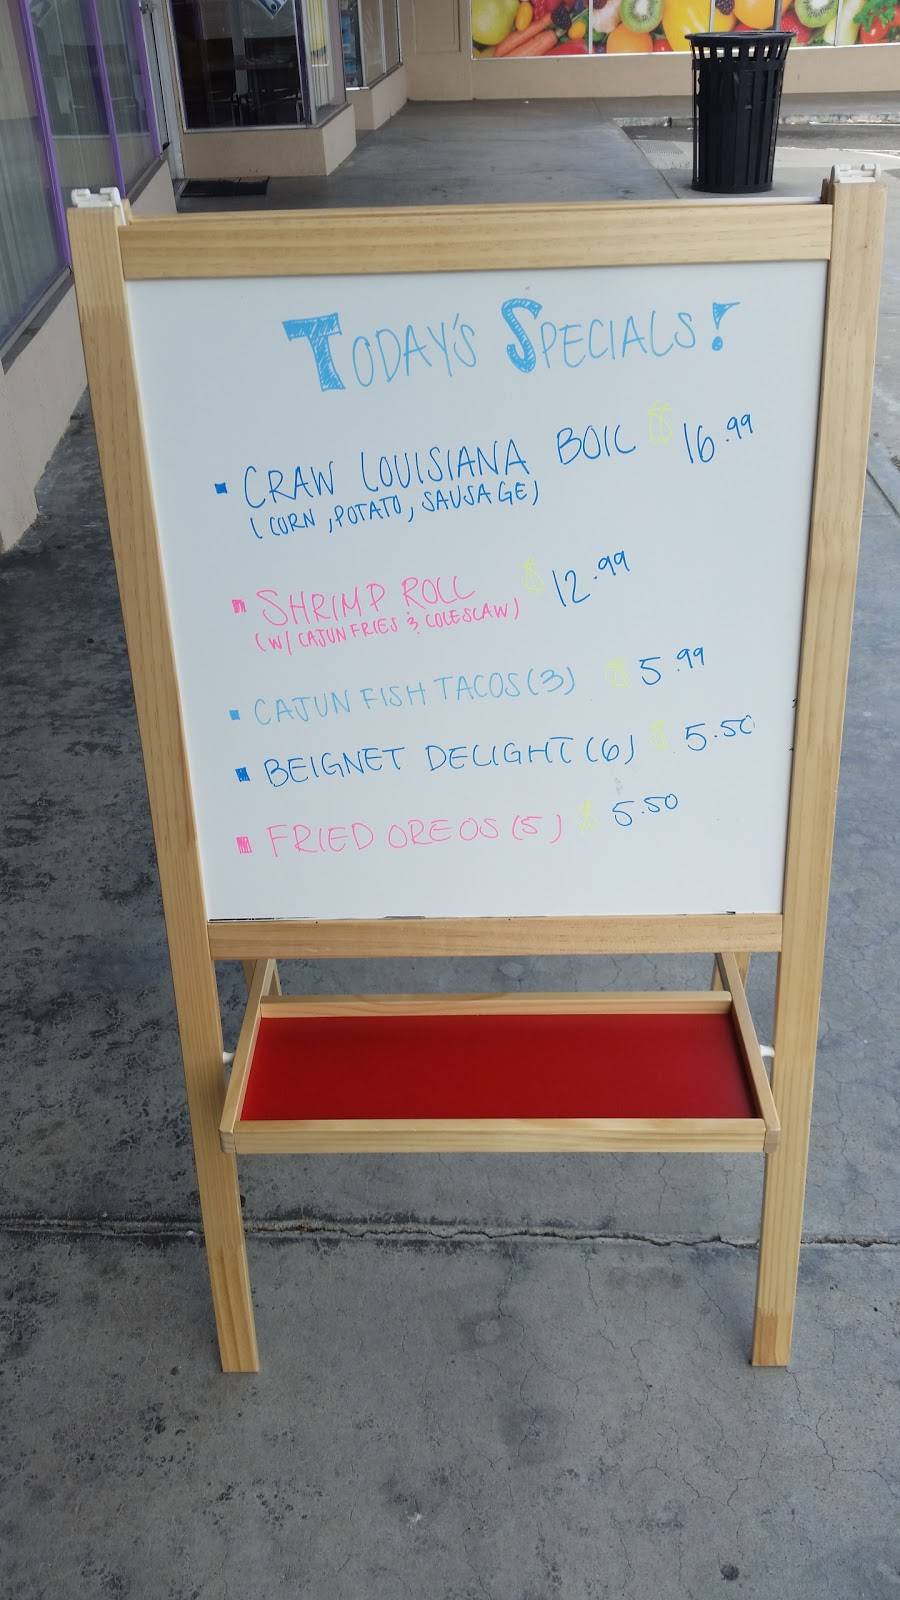 TODAY'S SPECIALS!
▪ CRAW LOUISIANA BOIL $ 16.99
(CORN, POTATO, SAUSAGE)
▪ SHRIMP ROLL $ 12.99
(W/ CAJUN FRIES & COLESLAW)
▪ CAJUN FISH TACOS (3) $ 5.99
▪ BEIGNET DELIGHT (6) $ 5.50
▪ FRIED OREOS (5) $ 5.50